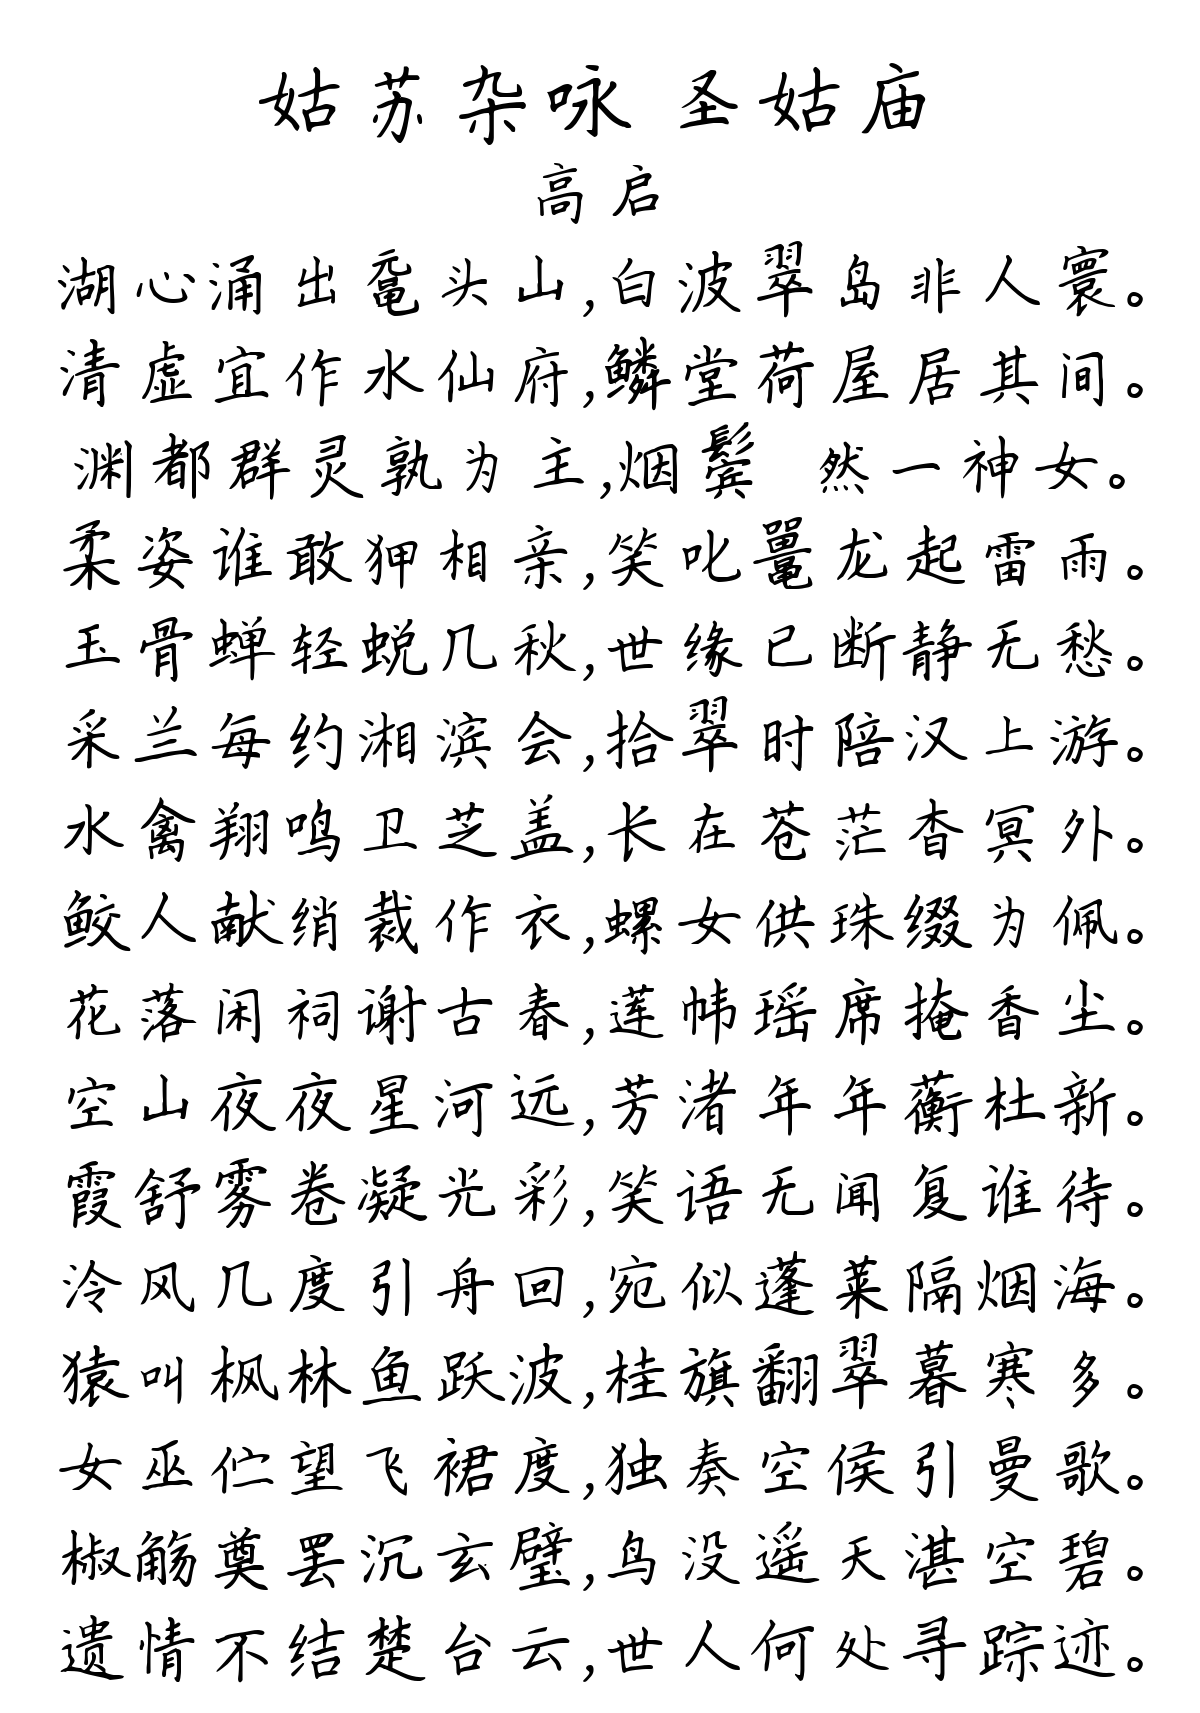 姑苏杂咏 圣姑庙
高启
湖心涌出鼋头山,白波翠岛非人寰。
清虚宜作水仙府,鳞堂荷屋居其间。
渊都群灵孰为主,烟鬓 然一神女。
柔姿谁敢狎相亲,笑叱鼍龙起雷雨。
玉骨蝉轻蜕几秋,世缘已断静无愁。
采兰每约湘滨会,拾翠时陪汉上游。
水禽翔鸣卫芝盖,长在苍茫杳冥外。
鲛人献绡裁作衣,螺女供珠缀为佩。
花落闲祠谢古春,莲帏瑶席掩香尘。
空山夜夜星河远,芳渚年年蘅杜新。
霞舒雾卷凝光彩,笑语无闻复谁待。
泠风几度引舟回,宛似蓬莱隔烟海。
猿叫枫林鱼跃波,桂旗翻翠暮寒多。
女巫伫望飞裙度,独奏空侯引曼歌。
椒觞奠罢沉玄璧,鸟没遥天湛空碧。
遗情不结楚台云,世人何处寻踪迹。